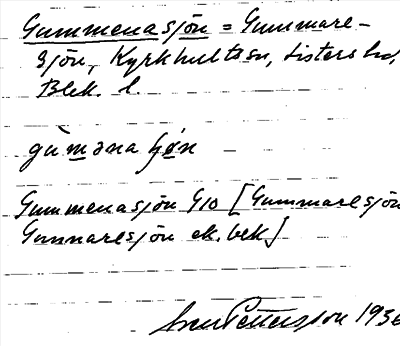 Gummenasjön = Gummare-
sjön, Kyrkhults sn, Listers hd,
Blek. l.
gùmǝna ʃøn
Gummenasjön G10 [Gummaresjön
Gunnaresjön ek. bek]
Sven Pettersson 1936